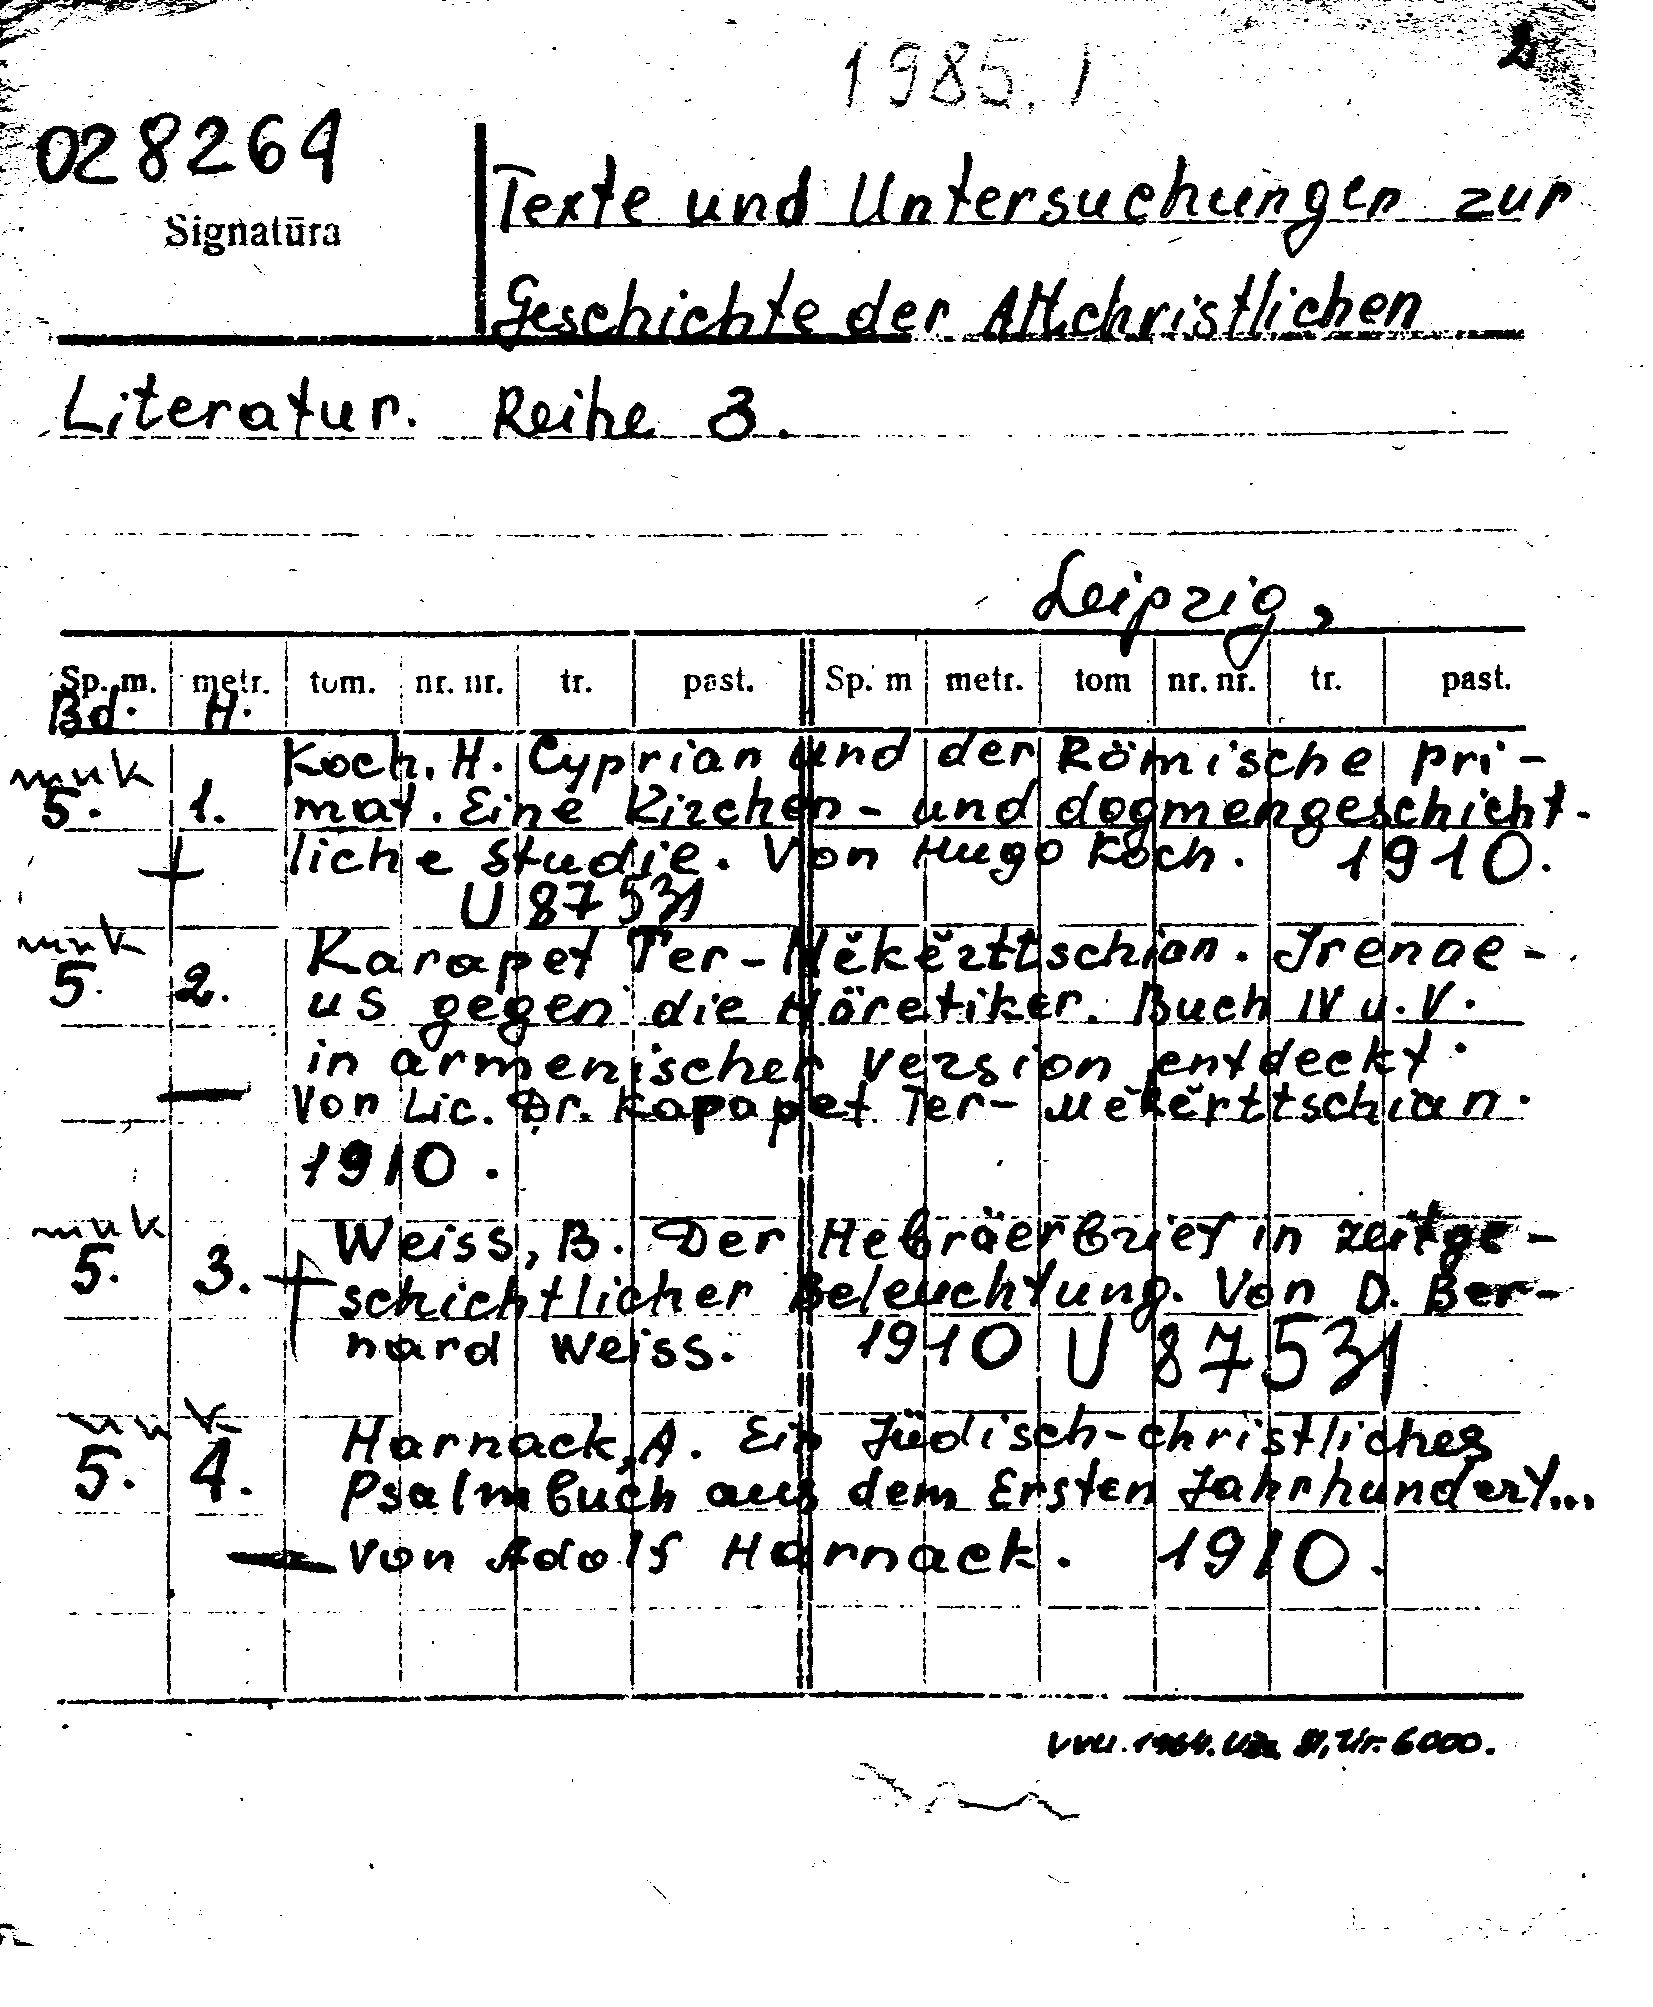 1985. 1
2
028264
Signatūra
Texte und Untersuchungen zur
Geschichte der Altchristlichen
Literatur. Reihe 3.
Leipzig,
Sp. m. metr. tom. nr. nr. tr. past. Sp. m metr. tom nr. nr. tr. past.
Bd. H.
mnk
5. 1. Koch, H. Cyprian und der Römische Pri-
mat. Eine Kirchen- und dogmengeschicht-
liche Studie. Von Hugo Koch. 1910.
U 87531
mnk
5. 2. Karapet Ter-Měkěrttschian. Irenae-
us gegen die Häretiker. Buch IV u. V.
in armenischer Version entdeckt.
Von Lic. Dr. Kapapet Ter-Měkěrttschian.
1910.
mnk
5. 3. Weiss, B. Der Hebräerbrief in zeitge-
schichtlicher Beleuchtung. Von D. Ber-
nard Weiss. 1910 U 87531
mnk
5. 4. Harnack, A. Ein Jüdisch-christliches
Psalmbuch aus dem Ersten Jahrhundert...
Von Adolf Harnack. 1910.
6000.